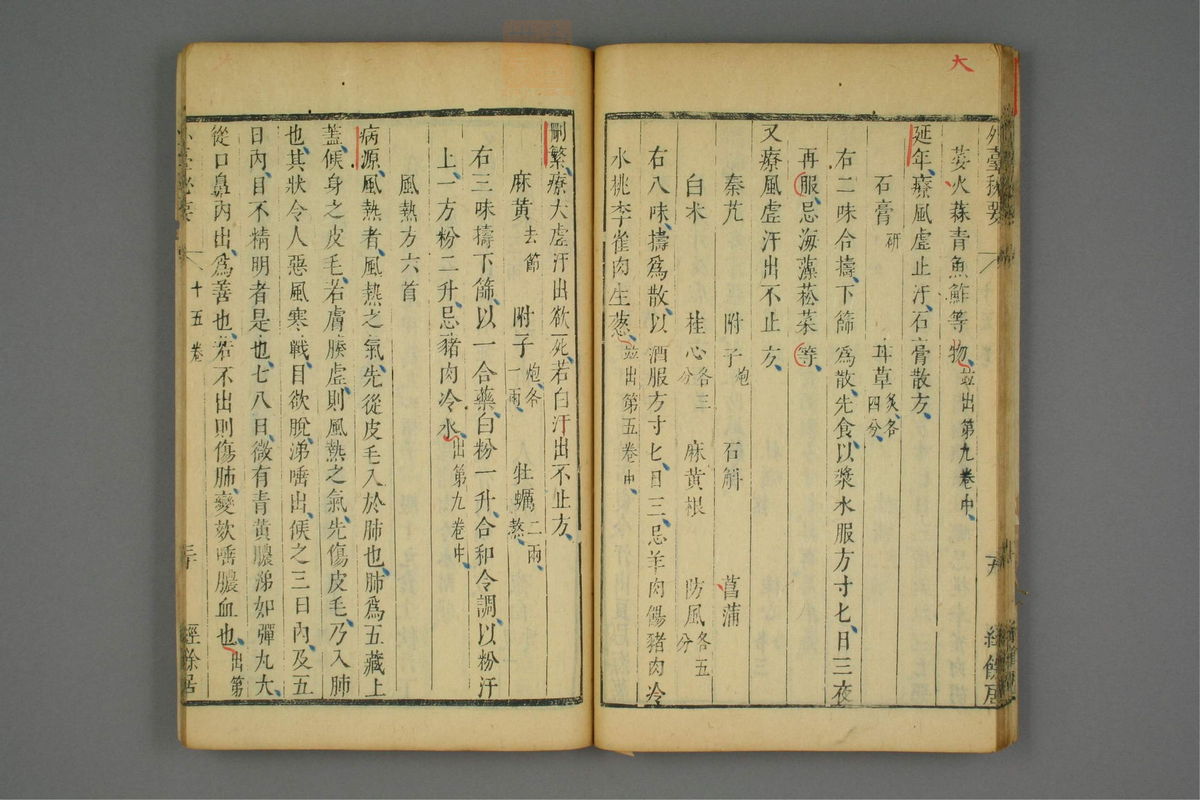 大
外臺秘要
經餘居
蕪火蒜青魚鮓等物竝出第九卷中
延年療風虛止汗石膏散方
石膏研 甘草四分炙
右二味合擣下篩爲散先食以漿水服方寸匕日三夜
再服忌海藻菘菜等
又療風虛汗出不止方
秦艽 附子炮 石斛 菖蒲
白朮 桂心各三分 麻黃根 防風各五分
右八味擣爲散以酒服方寸匕日三忌羊肉餳豬肉冷
水桃李雀肉生葱竝出第五卷中
刪繁療大虛汗出欲死若白汗出不止方
麻黃去節 附子炮各一兩 牡蠣二兩熬
右三味擣下篩以一合藥白粉一升合和令調以粉汗
上一方粉二升忌豬肉冷水出第九卷中
風熱方六首
病源風熱者風熱之氣先從皮毛入於肺也肺爲五藏上
蓋候身之皮毛若膚腠虛則風熱之氣先傷皮毛乃入肺
也其狀令人惡風寒戰目欲脫涕唾出候之三日內及五
日內目不精明者是也七八日微有青黃膿涕如彈丸大
從口鼻內出爲善也若不出則傷肺變欬唾膿血也出第
十五卷
經餘居